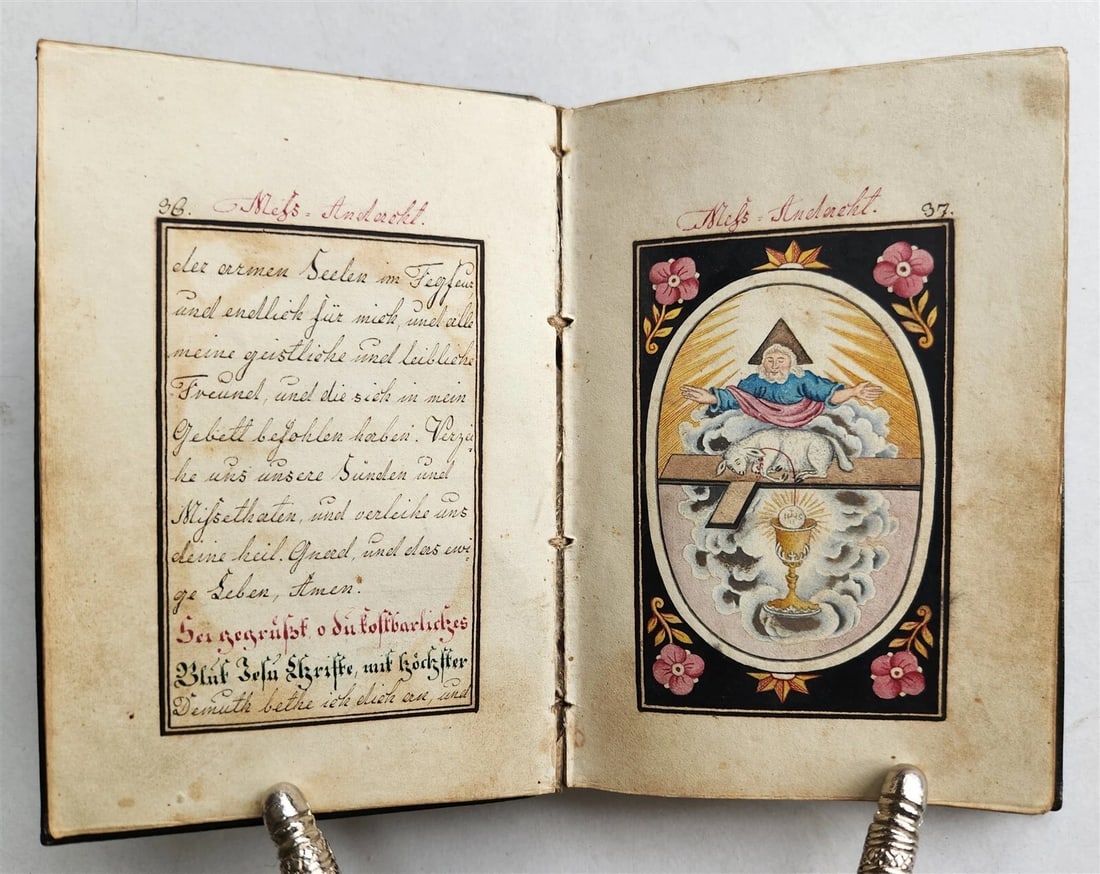 36. Mess-Andacht.
der armen Seelen im Fegfeur
und endlich für mich, und alle
meine geistliche und leibliche
Freund, und die sich in mein
Gebett befohlen haben. Verzei
he uns unsere Sünden und
Missethaten, und verleihe uns
deine heil. Gnad, und das ewi-
ge Leben, Amen.
Sei gegrüßt o du kostbarliches
Blut Jesu Christe, mit höchster
Demuth bethe ich dich an, und
Mess-Andacht. 37.
IHS